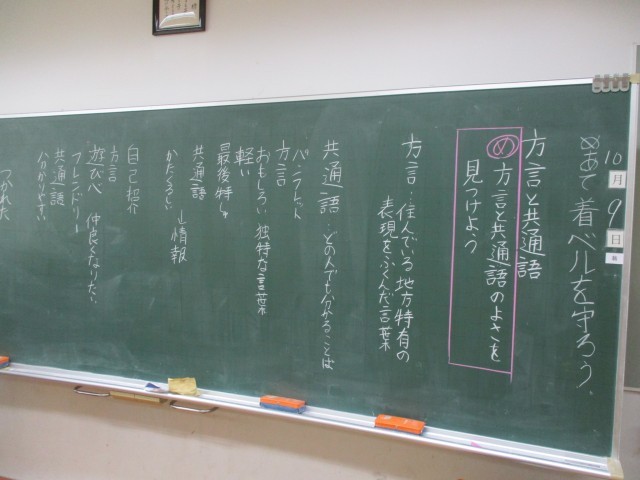 10月9日
めあて 着ベルを守ろう。
方言と共通語
め 方言と共通語のよさを
見つけよう
方言‥住んでいる地方特有の
表現をふくんだ言葉
共通語‥どの人でも分かることば
パンクちゃん
方言
おもしろい 独特な言葉
軽い
最後特しゅ
共通語
かたくるしい
→情報
自己紹介
方言
遊び心 仲良くなりたい
フレンドリー
共通語
分かりやすい
つかれた